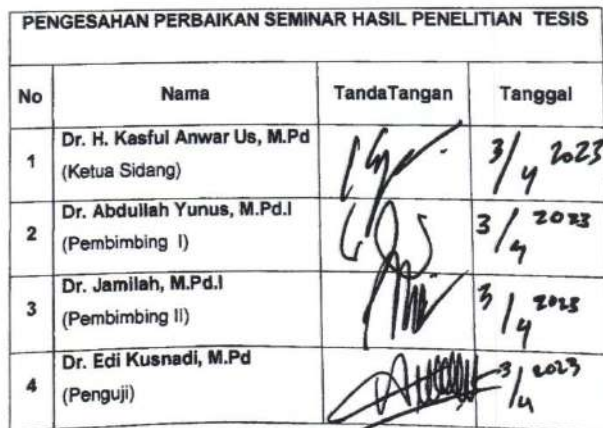 PENGESAHAN PERBAIKAN SEMINAR HASIL PENELITIAN TESIS
No Nama TandaTangan Tanggal
1 Dr. H. Kasful Anwar Us, M.Pd
(Ketua Sidang)
3/4 2023
2 Dr. Abdullah Yunus, M.Pd.I
(Pembimbing I)
3/4 2023
3 Dr. Jamilah, M.Pd.I
(Pembimbing II)
3/4 2023
4 Dr. Edi Kusnadi, M.Pd
(Penguji)
3/4 2023